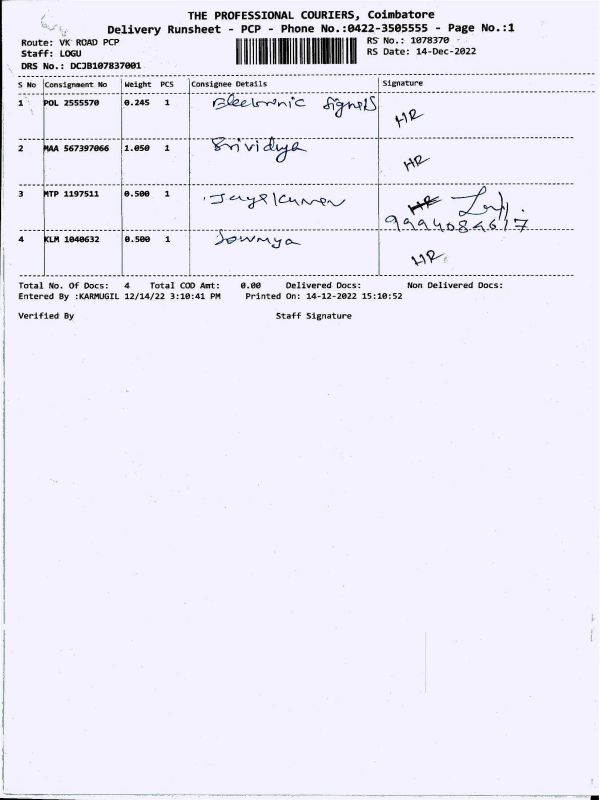 THE PROFESSIONAL COURIERS, Coimbatore
Delivery Runsheet - PCP - Phone No.:0422-3505555 - Page No.:1
Route: VK ROAD PCP RS No.: 1078370
Staff: LOGU RS Date: 14-Dec-2022
DRS No.: DCJB107837001
S No Consignment No Weight PCS Consignee Details Signature
1 POL 2555570 0.245 1 Electronic Signals HR
2 MAA 567397066 1.050 1 Srividya HR
3 MTP 1197511 0.500 1 Jayakumar HR
9994084617
4 KLM 1040632 0.500 1 Sowmya HR
Total No. Of Docs: 4 Total COD Amt: 0.00 Delivered Docs: Non Delivered Docs:
Entered By :KARMUGIL 12/14/22 3:10:41 PM Printed On: 14-12-2022 15:10:52
Verified By Staff Signature